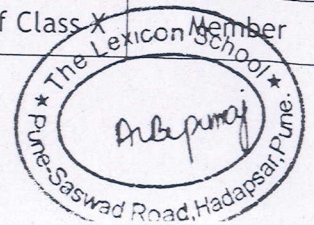 f Class X
Member
★ The Lexicon School ★
Pune-Saswad Road, Hadapsar, Pune.